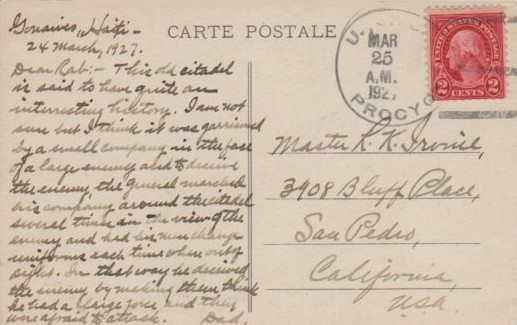 Gonaives, Haiti -
24 March, 1927.
Dear Rab:- This old citadel
is said to have quite an
interesting history. I am not
sure but I think it was garrisoned
by a small company in the face
of a large enemy and to deceive
the enemy, the general marched
his company around the citadel
several times in the view of the
enemy and had his men change
uniforms each time when out of
sight. In that way he deceived
the enemy by making them think
he had a large force and they
were afraid to attack. Dad.
CARTE POSTALE
U.S.
MAR
25
A.M.
192
PROCYO
UNITED STATES POSTAGE
2 CENTS 2
Master R. K. Irvine,
3908 Bluff Place,
San Pedro,
California,
USA.